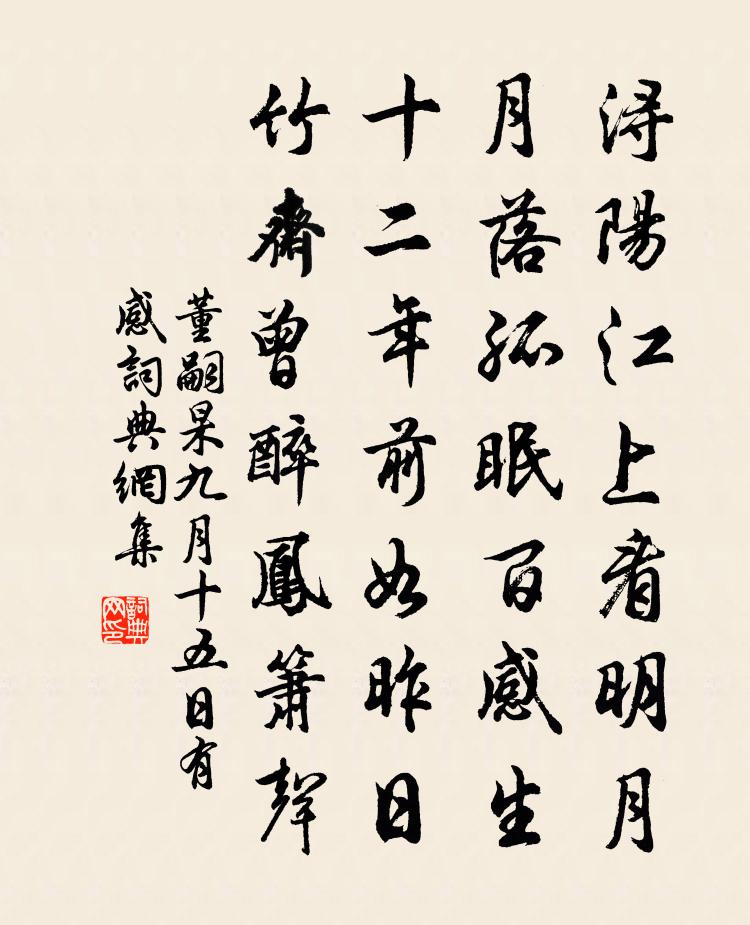 潯陽江上看明月
月落孤眠百感生
十二年前如昨日
竹齋曾醉鳳簫聲
董嗣杲九月十五日有
感詞典網集
詞典
网印